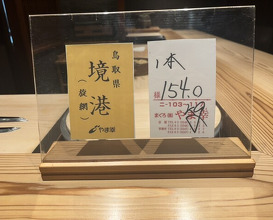 鳥取県
境港
(旋網)
やま幸
1本
154.0
ニ-103-1
まぐろ
やま幸